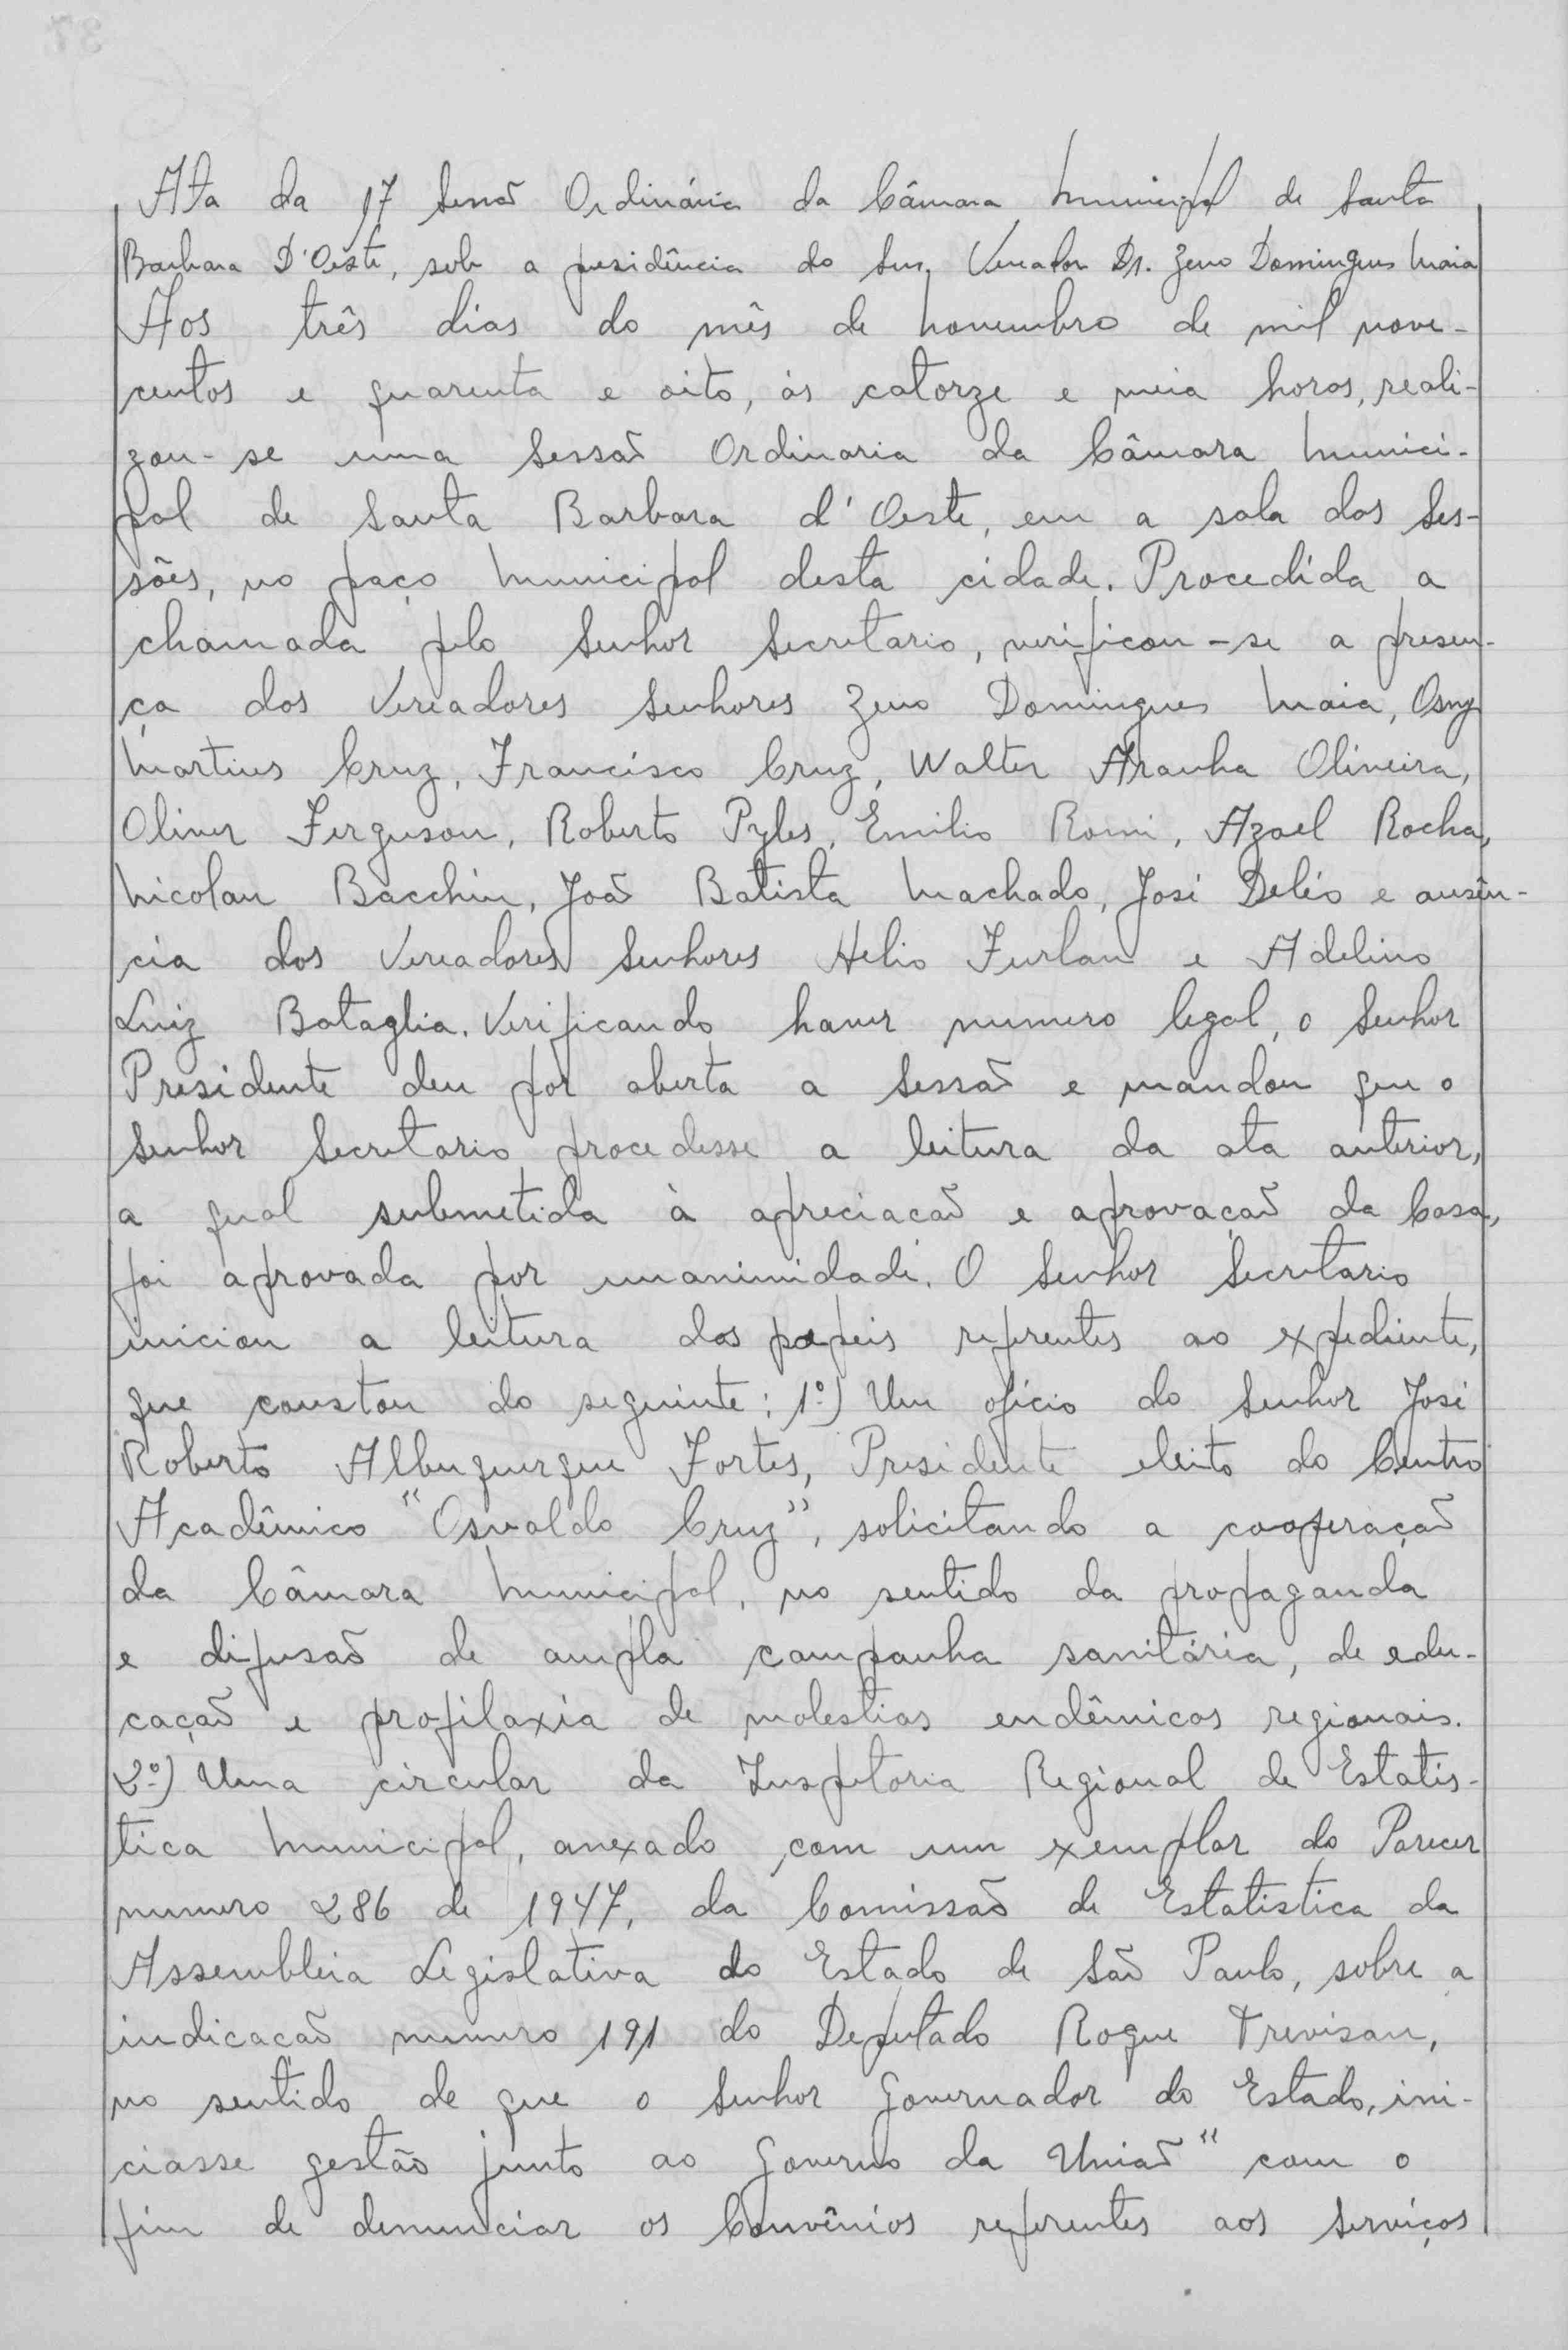 Ata da 17 Sessão Ordinária da Câmara Municipal de Santa
Barbara D'Oeste, sob a presidência do Snr. Vereador Dr. Zeno Domingues Maia
Aos três dias do mês de Novembro de mil nove-
centos e quarenta e oito, ás catorze e meia horas, reali-
zou-se uma Sessão Ordinaria da Câmara Munici-
pal de Santa Barbara d'Oeste, em a sala das Ses-
sões, no paço Municipal desta cidade. Procedida a
chamada pelo Senhor Secretario, verificou-se a presen-
ça dos Vereadores Senhores Zeno Domingues Maia, Osny
Martins Cruz, Francisco Cruz, Walter Aranha Oliveira,
Oliver Ferguson, Roberto Pyles, Emilio Romi, Azael Rocha,
Nicolau Bacchin, João Batista Machado, José Deléo e ausên-
cia dos Vereadores Senhores Helio Furlan e Adelino
Luiz Bataglia. Verificando haver numero legal, o Senhor
Presidente deu por aberta a Sessão e mandou que o
Senhor Secretario procedesse a leitura da ata anterior,
a qual submetida à apreciacão e aprovação da Casa,
foi aprovada por unanimidade. O Senhor Secretario
iniciou a leitura dos papeis referentes ao expediente,
que constou do seguinte: 1º) Um ofício do Senhor José
Roberto Albuquerque Fortes, Presidente eleito do Centro
Acadêmico "Osvaldo Cruz", solicitando a cooperação
da Câmara Municipal, no sentido da propaganda
e difusão de ampla campanha sanitária, de edu-
cação e profilaxia de molestias endêmicas regionais.
2º) Uma circular da Inspetoria Regional de Estatis-
tica Municipal, anexado com um exemplar do Parecer
numero 286 de 1947, da Comissão de Estatistica da
Assembleia Legislativa do Estado de São Paulo, sobre a
indicacão numero 191 do Deputado Roque Trevisan,
no sentido de que o Senhor Governador do Estado, ini-
ciasse gestão junto ao Governo da União" com o
fim de denunciar os Convênios referentes aos Serviços